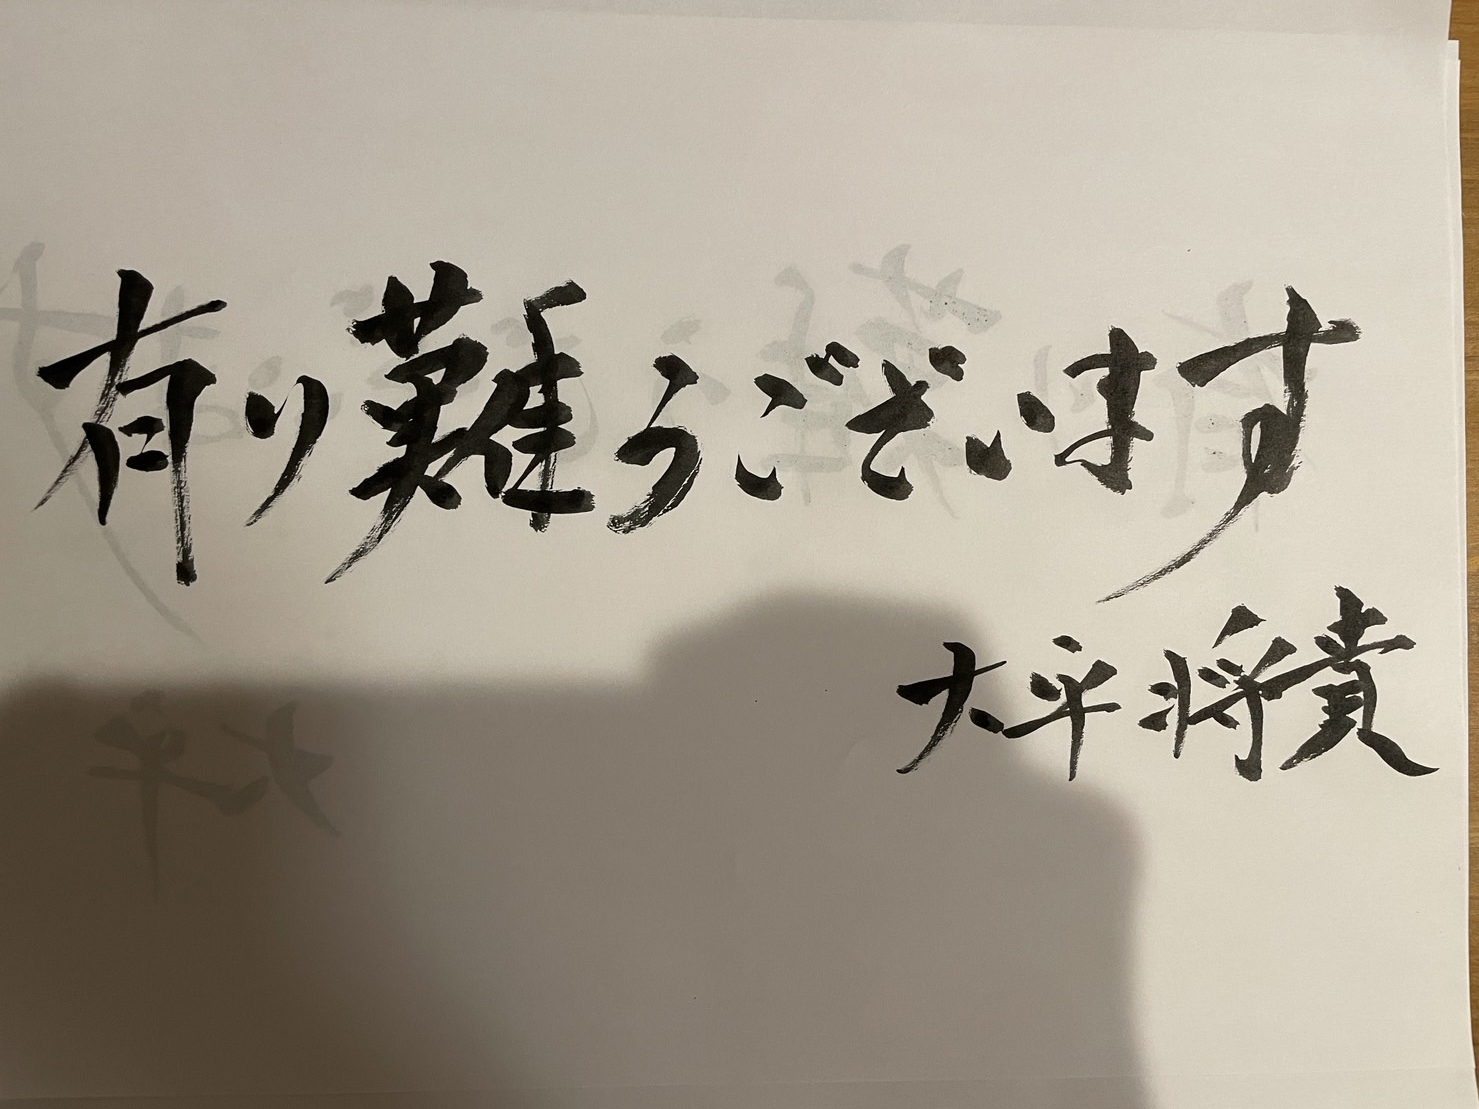 有り難うございます
大平将貴